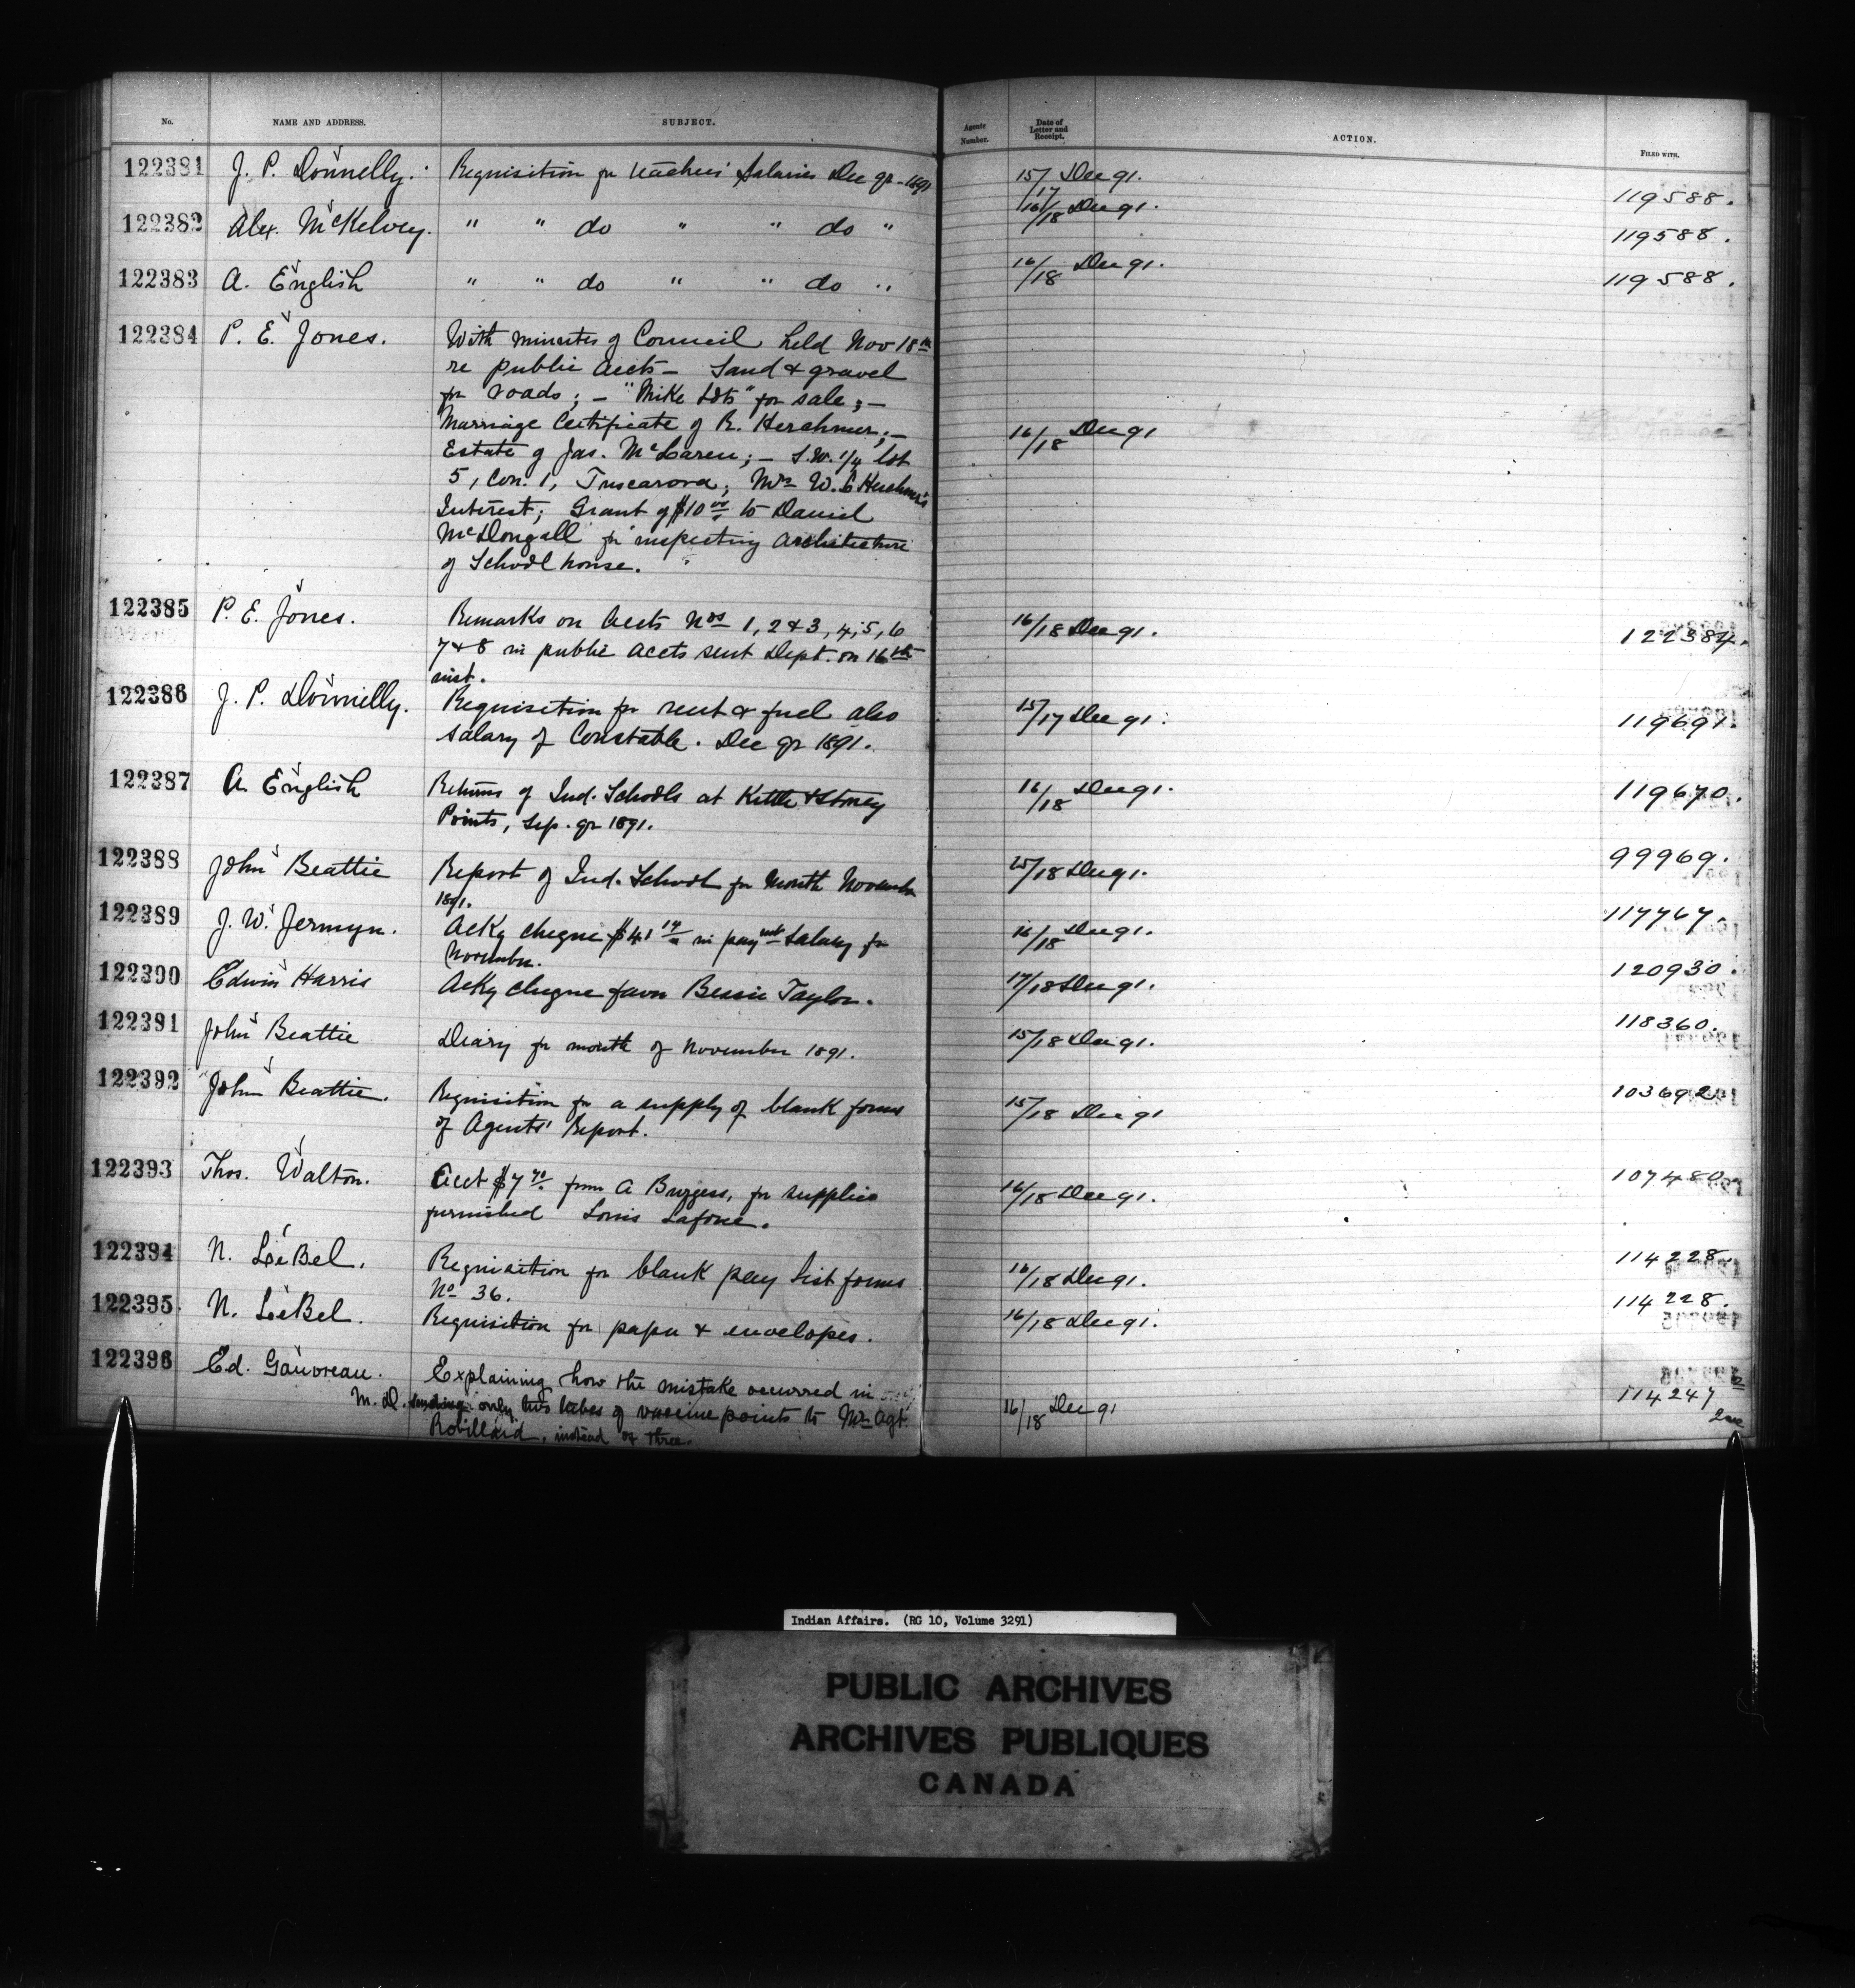 No. NAME AND ADDRESS. SUBJECT. Agents Number. Date of Letter and Receipt. ACTION. FILED WITH.
122381 J. P. Donnelly. Requisition for teachers' Salaries Dec qr - 1891 15/17 Dec 91. 119588.
122382 Alex. McKelvey. " " do " " do " 16/18 Dec 91. 119588.
122383 A. English " " do " " do " 16/18 Dec 91. 119588.
122384 P. E. Jones. With minutes of Council held Nov 18th
re public accts - Sand & gravel
for roads; - "Mike Lots" for sale; -
Marriage Certificate of R. Herchmer; - 16/18 Dec 91
Estate of Jas. McLaren; - S.W. 1/4 lot
5, Con. 1, Tuscarora; Mrs W. C Herchmer's
Interest; Grant of $10.00 to Daniel
McDougall for inspecting architecture
of School house.
122385 P. E. Jones. Remarks on accts Nos 1, 2 & 3, 4, 5, 6 16/18 Dec 91. 122384.
7 & 8 in public accts sent Dept. on 16th
inst.
122386 J. P. Donnelly. Requisition for rent & fuel also 15/17 Dec 91. 119691
salary of Constable. Dec qr 1891.
122387 A. English Returns of Ind. Schools at Kettle & Stoney 16/18 Dec 91. 119670.
Points, Sep. qr 1891.
122388 John Beattie Report of Ind. School for month November /18 Dec 91. 99969.
1891.
122389 J. W. Jermyn. Ackg cheque $41 in paymt Salary for 16/18 Dec 91. 117767.
November.
122390 Edwin Harris Ackg cheque favor Bessie Taylor. 17/18 Dec 91. 120930.
122391 John Beattie Diary for month of November 1891. 15/18 Dec 91. 118360.
122392 John Beattie. Requisition for a supply of blank forms 15/18 Dec 91 103692
of Agents' Report.
122393 Thos. Walton. Acct $7.70 from A Burgess, for supplies 16/18 Dec 91. 107480
furnished Louis Lafone.
122394 N. LeBel. Requisition for blank pay list forms 16/18 Dec 91. 114228
No 36.
122395 N. LeBel. Requisition for paper & envelopes. 16/18 Dec 91. 114228.
122396 Ed. Gauvreau. Explaining how the mistake occurred in 114247
M.D. sending only two tubes of vaccine points to Mr Agt. 16/18 Dec 91
Robillard, instead of three.
Indian Affairs. (RG 10, Volume 3291)
PUBLIC ARCHIVES
ARCHIVES PUBLIQUES
CANADA